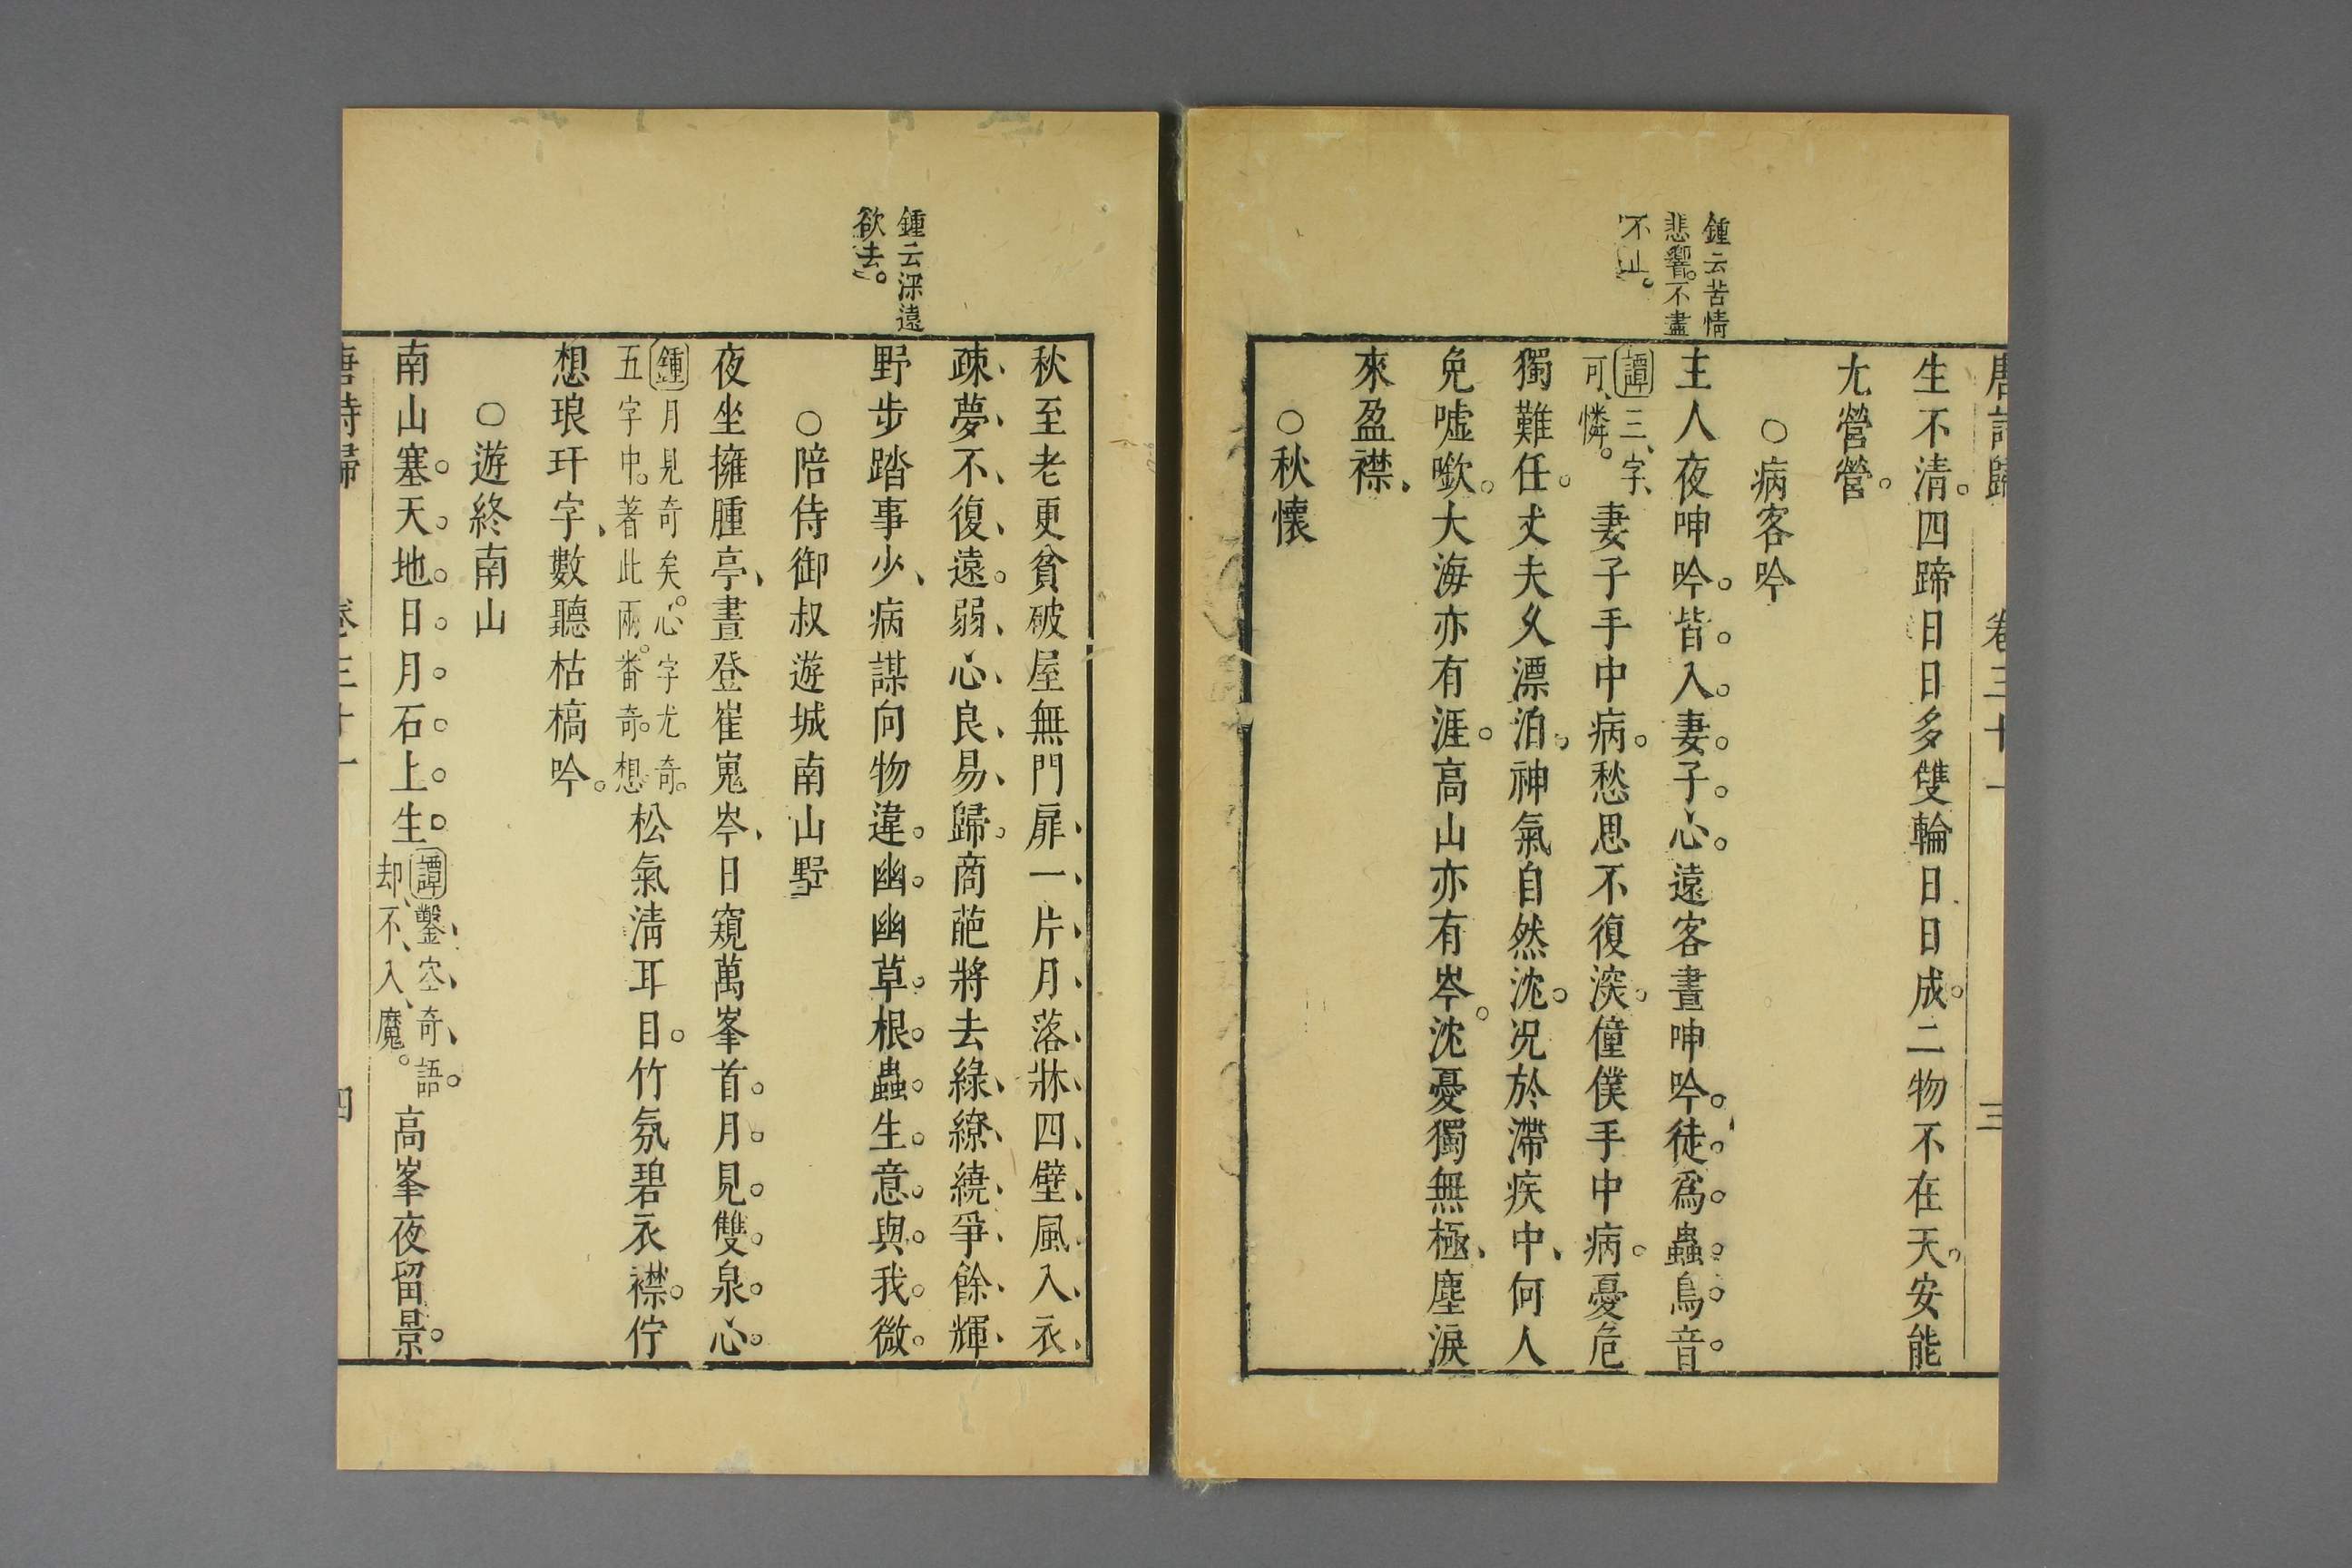 唐詩歸 卷三十一 三
生不清。四蹄日日多雙輪日日成。二物不在天。安能
尤營營。
○病客吟
鍾云苦情
悲響。不盡
不止。
主人夜呻吟。皆。入。妻。子。心。遠客晝呻吟。徒。爲。蟲。鳥。音。
譚三、字、
可、憐。
妻子手中病。愁思不復深。僮僕手中病。憂危
獨難任。丈夫久漂泊。神氣自然沈。况於滯疾中、何人
免噓歎。大海亦有涯。高山亦有岑。沈憂獨無極、塵淚
來盈襟、
○秋懷
秋至老更貧破屋無門扉、一、片、月、落、牀、四、壁、風、入、衣、
疎、夢、不、復、遠。弱、心、良、易、歸。商葩將去綠、繚、繞、爭、餘、輝、
鍾云深遠
欲去。
野步踏事少、病謀向物違。幽。幽草。根。蟲。生。意。與。我。微。
○陪侍御叔遊城南山墅
夜坐擁腫亭、晝登崔嵬岑、日窺萬峯首。月。見。雙。泉。心。
鍾月見奇矣。心字尤奇。
五字中。著此兩。番奇。想
松氣清耳目。竹氛碧衣襟。佇
想琅玕字、數聽枯槁吟。
○遊終南山
南山塞。天。地。日。月。石。上。生。
譚鑿、空、奇、語。
却、不、入、魔。
高峯夜留景。
唐詩歸 卷三十一 四